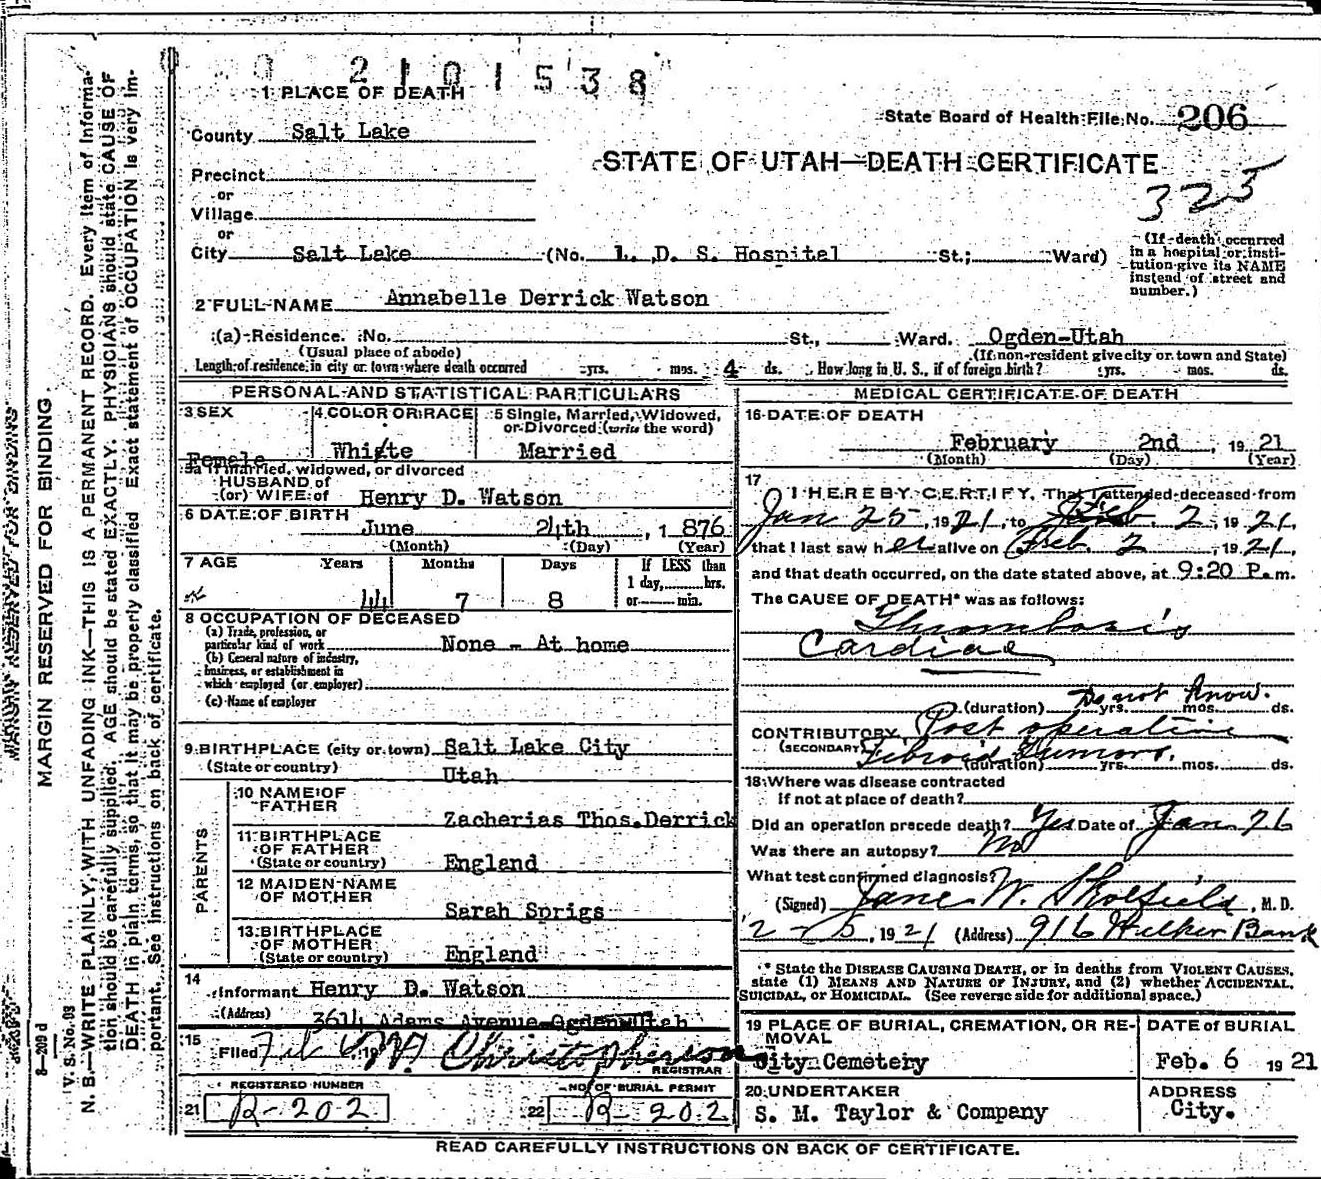 2101538
1 PLACE OF DEATH
State Board of Health File No. 206
County Salt Lake
STATE OF UTAH—DEATH CERTIFICATE
325
Precinct
or
Village
or
City Salt Lake (No. L. D. S. Hospital St.; Ward)
(If death occurred in a hospital or insti-
tution give its NAME
instead of street and
number.)
2 FULL NAME Annabelle Derrick Watson
(a) Residence. No. St., Ward. Ogden-Utah
(Usual place of abode) (If non-resident give city or town and State)
Length of residence in city or town where death occurred yrs. mos. 4 ds. How long in U. S., if of foreign birth? yrs. mos. ds.
PERSONAL AND STATISTICAL PARTICULARS
3 SEX
Female
4 COLOR OR RACE
White
5 Single, Married, Widowed,
or Divorced (write the word)
Married
5a If married, widowed, or divorced
HUSBAND of
(or) WIFE of Henry D. Watson
6 DATE OF BIRTH June 24th, 1876
(Month) (Day) (Year)
7 AGE Years Months Days If LESS than
1 day, hrs.
or min.
44 7 8
8 OCCUPATION OF DECEASED
(a) Trade, profession, or
particular kind of work None - At home
(b) General nature of industry,
business, or establishment in
which employed (or employer)
(c) Name of employer
9 BIRTHPLACE (city or town) Salt Lake City
(State or country) Utah
PARENTS
10 NAME OF
FATHER Zacherias Thos. Derrick
11 BIRTHPLACE
OF FATHER
(State or country) England
12 MAIDEN NAME
OF MOTHER Sarah Sprigs
13 BIRTHPLACE
OF MOTHER
(State or country) England
14
Informant Henry D. Watson
(Address) 3614 Adams Avenue-Ogden-Utah
15
Filed Feb 19 Christopherson
REGISTRAR
REGISTERED NUMBER
21 R-202
NO. OF BURIAL PERMIT
22 R-202
MEDICAL CERTIFICATE OF DEATH
16 DATE OF DEATH
February 2nd, 1921
(Month) (Day) (Year)
17
I HEREBY CERTIFY, That I attended deceased from
Jan 25, 1921, to Feb. 2, 1921,
that I last saw her alive on Feb. 2, 1921,
and that death occurred, on the date stated above, at 9:20 P.m.
The CAUSE OF DEATH* was as follows:
Thrombosis
Cardiac
Do not know.
(duration) yrs. mos. ds.
CONTRIBUTORY Post operative
(SECONDARY) Fibroid Tumors.
(duration) yrs. mos. ds.
18 Where was disease contracted
if not at place of death?
Did an operation precede death? Yes Date of Jan. 26
Was there an autopsy? No
What test confirmed diagnosis?
(Signed) Jane W. Skolfield, M. D.
2-5, 1921 (Address) 916 Walker Bank
* State the DISEASE CAUSING DEATH, or in deaths from VIOLENT CAUSES,
state (1) MEANS AND NATURE OF INJURY, and (2) whether ACCIDENTAL,
SUICIDAL, or HOMICIDAL. (See reverse side for additional space.)
19 PLACE OF BURIAL, CREMATION, OR RE-
MOVAL
City Cemetery
DATE of BURIAL
Feb. 6 1921
20 UNDERTAKER
S. M. Taylor & Company
ADDRESS
City.
READ CAREFULLY INSTRUCTIONS ON BACK OF CERTIFICATE.
MARGIN RESERVED FOR BINDING
8—209 d
V. S. No. 03
N. B.—WRITE PLAINLY, WITH UNFADING INK—THIS IS A PERMANENT RECORD. Every item of informa-
tion should be carefully supplied. AGE should be stated EXACTLY. PHYSICIANS should state CAUSE OF
DEATH in plain terms, so that it may be properly classified. Exact statement of OCCUPATION is very im-
portant. See instructions on back of certificate.